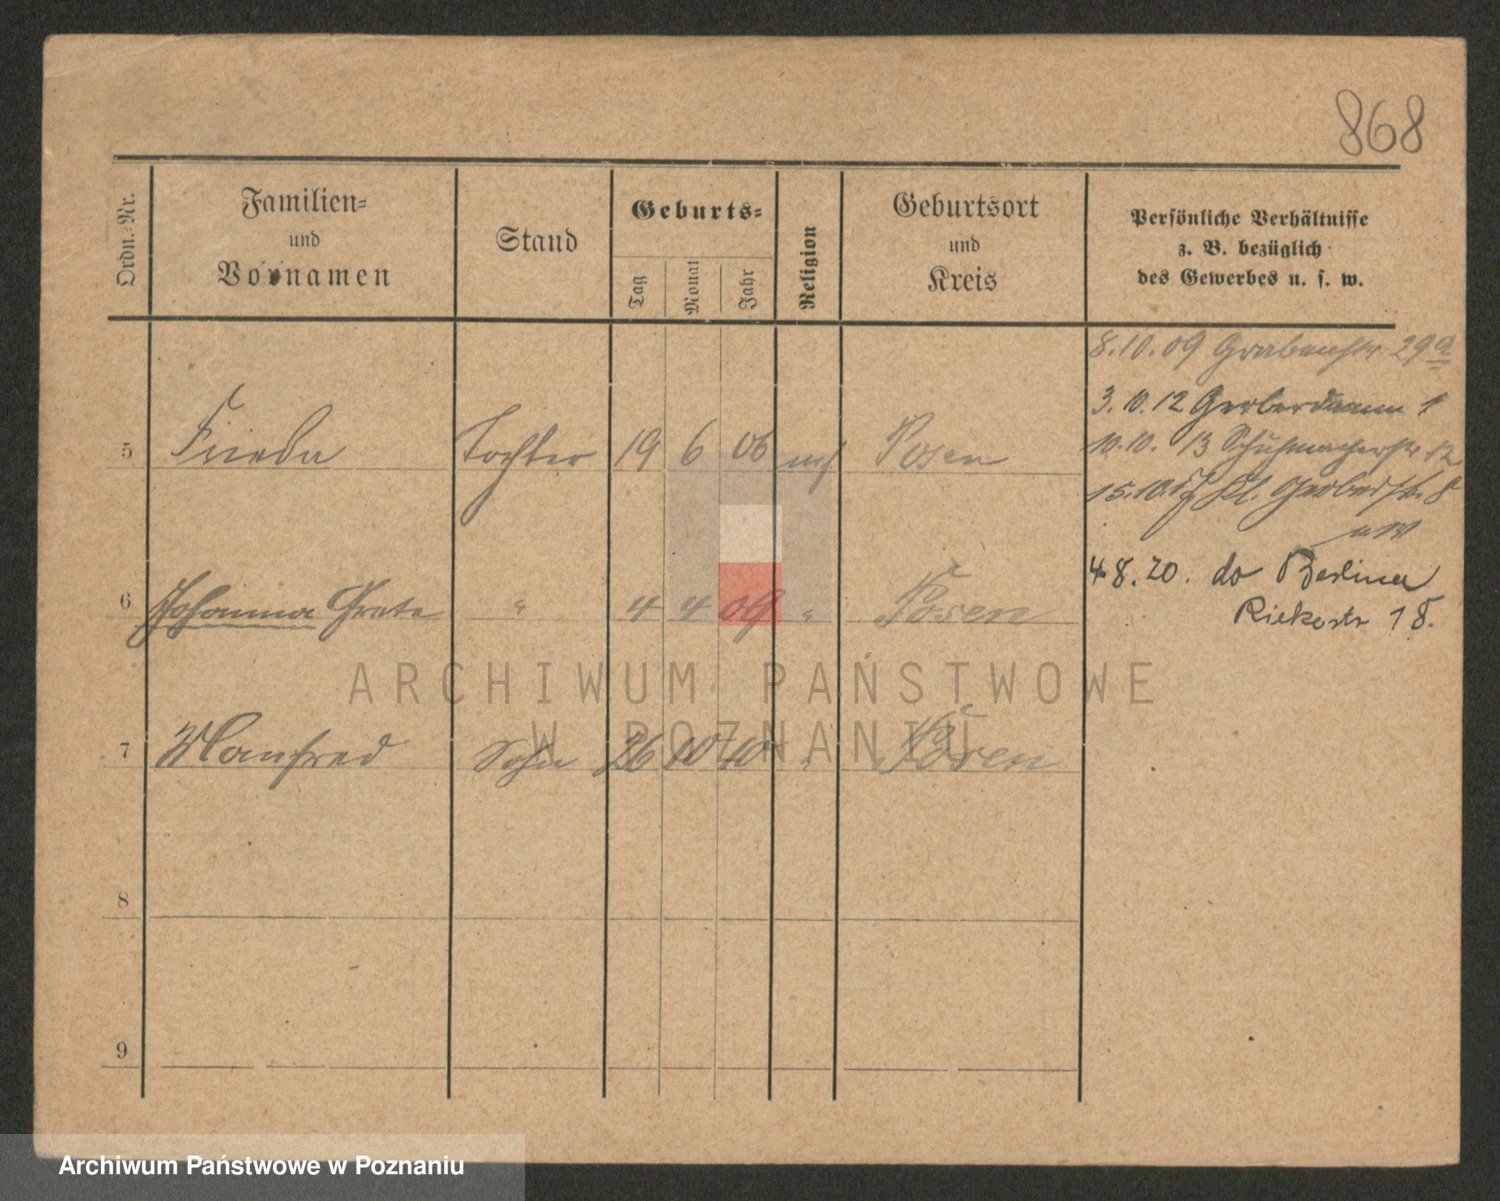 868
Ordn.-Nr.
Familien-
und
Vornamen
Stand
Geburts-
Tag
Monat
Jahr
Religion
Geburtsort
und
Kreis
Persönliche Verhältnisse
z. B. bezüglich
des Gewerbes u. s. w.
8.10.09 Grabenstr 29a
3.10.12 Gerberdamm 1
10.10.13 Schuhmacherstr 12
15.10. Kl. Gerberstr. 8
48.20. do Berliner
18.
5 Frieda Tochter 19 6 06 Posen
6 Johanna Grete " 4 4 09 " Posen
7 Manfred Sohn 26 10 10 " Posen
8
9
ARCHIWUM PAŃSTWOWE
W POZNANIU
Archiwum Państwowe w Poznaniu